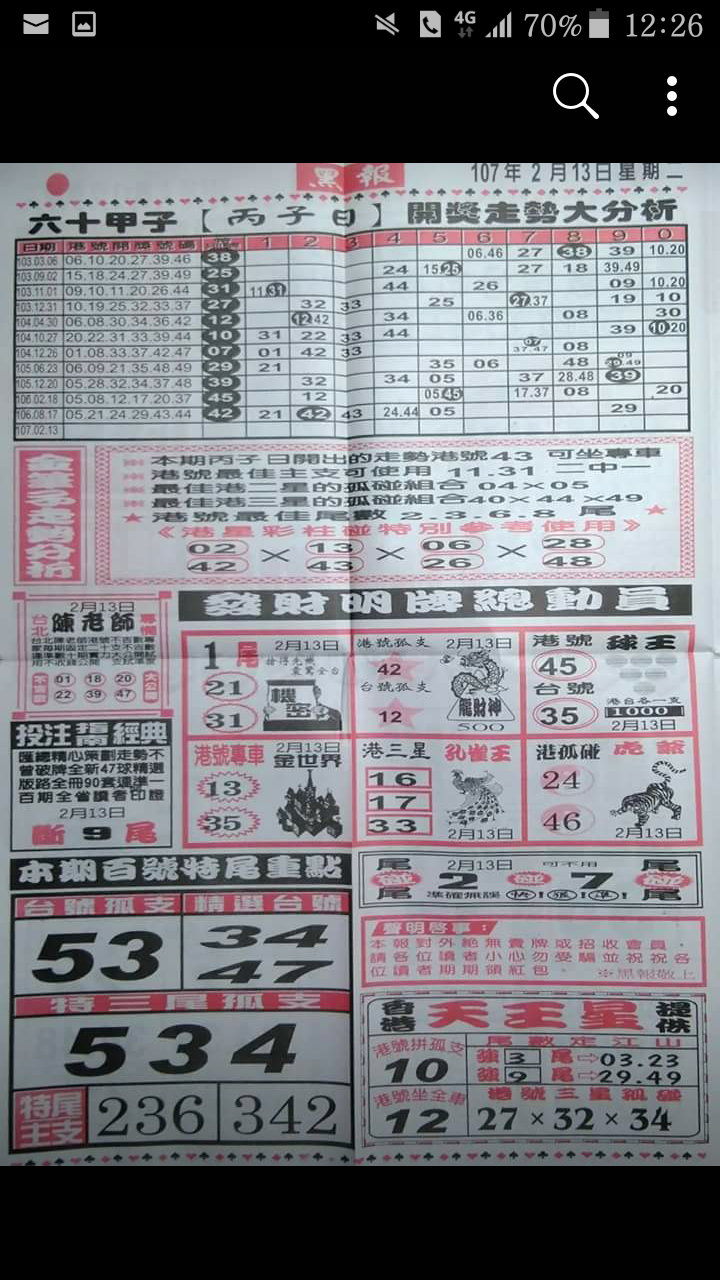 4G 70% 12:26
黑報 107年2月13日星期二
六十甲子【丙子日】開獎走勢大分析
日期 港號開獎號碼 1 2 3 4 5 6 7 8 9 0
103.03.06 06.10.20.27.39.46 38 06.46 27 38 39 10.20
103.09.02 15.18.24.27.39.49 25 24 15.25 27 18 39.49
103.11.01 09.10.11.20.26.44 31 11.31 44 26 09 10.20
103.12.31 10.19.25.32.33.37 27 32 33 25 27.37 19 10
104.04.30 06.08.30.34.36.42 12 12.42 34 06.36 08 30
104.10.27 20.22.31.33.39.44 10 31 22 33 44 39 10.20
104.12.26 01.08.33.37.42.47 07 01 42 33 07 37.47 08
105.06.23 06.09.21.35.48.49 29 21 35 06 48 09
105.12.20 05.28.32.34.37.48 39 32 34 05 37 28.48 39
106.02.18 05.08.12.17.20.37 45 12 05.45 17.37 08 20
106.08.17 05.21.24.29.43.44 42 21 42 43 24.44 05 29
107.02.13
走勢分析
本期丙子日開出的走勢港號43 可坐專車
港號最佳主支可使用 11.31 二中一
最佳港二星的孤碰組合04×05
最佳港三星的孤碰組合40×44×49
★ 港號最佳尾數 2.3.6.8 尾 ★
《港星彩柱碰特別參考使用》
02 × 13 × 06 × 28
42 43 26 48
2月13日
台北 陳老師 專欄
01 18 20
22 39 47
大公開
發財明牌總動員
1尾 2月13日
搶得先機
21
31
機密
港號孤支 2月13日
42
台號孤支
12
龍財神
500
港號 球王
45
台號
35
港台各一支
1000
2月13日
投注指南經典
匯總精心策劃走勢不
曾破牌全新47球精選
版路全冊90套連準一
百期全省讀者印證
2月13日
斷 9 尾
港號專車 2月13日
金世界
13
35
港三星 孔雀王
16
17
33
2月13日
港孤碰 虎爺
24
46
2月13日
本期百號特尾重點
台號孤支 精選台號
53
34
47
特三尾孤支
534
特尾主支 236 342
尾 2月13日 可不用 尾
尾 2 7 尾
準確無誤 快!狠!準!
聲明啓事:
本報對外絕無賣牌或招收會員,
請各位讀者小心勿受騙並祝祝各
位讀者期期領紅包. ※黑報敬上
香港 天王星 提供
港號拼孤支
10
尾數定江山
強 3 尾⇨03.23
強 9 尾⇨29.49
港號坐全車
12
港號三星孤碰
27×32×34